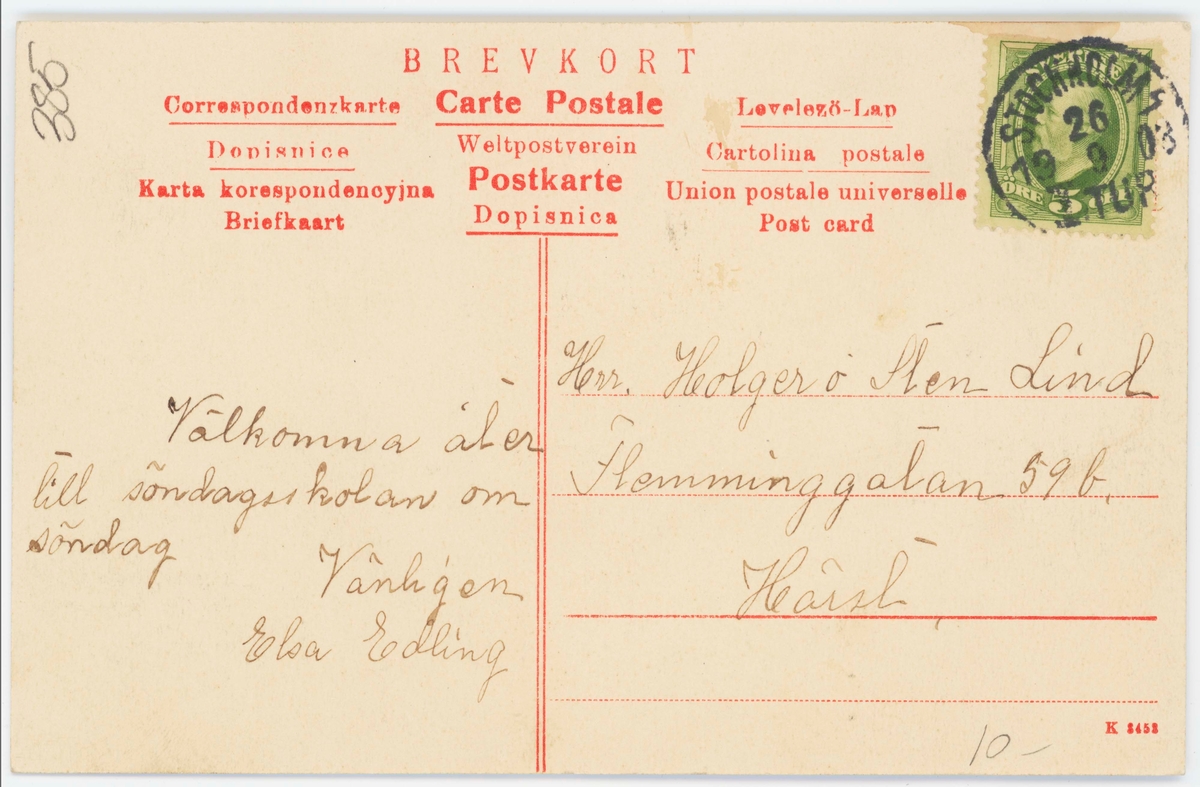 385
BREVKORT
Correspondenzkarte
Carte Postale
Levelező-Lap
Dopisnice
Weltpostverein
Cartolina postale
Karta korespondencyjna
Postkarte
Union postale universelle
Briefkaart
Dopisnica
Post card
STOCKHOLM 4
26
19 9 08
4 TUR
ÖRE 5
Välkomna åter
till söndagsskolan om
söndag
Vänligen
Elsa Edling
Hrr. Holger o Sten Lind
Flemminggatan 59 b.
Härst
K 2453
10-